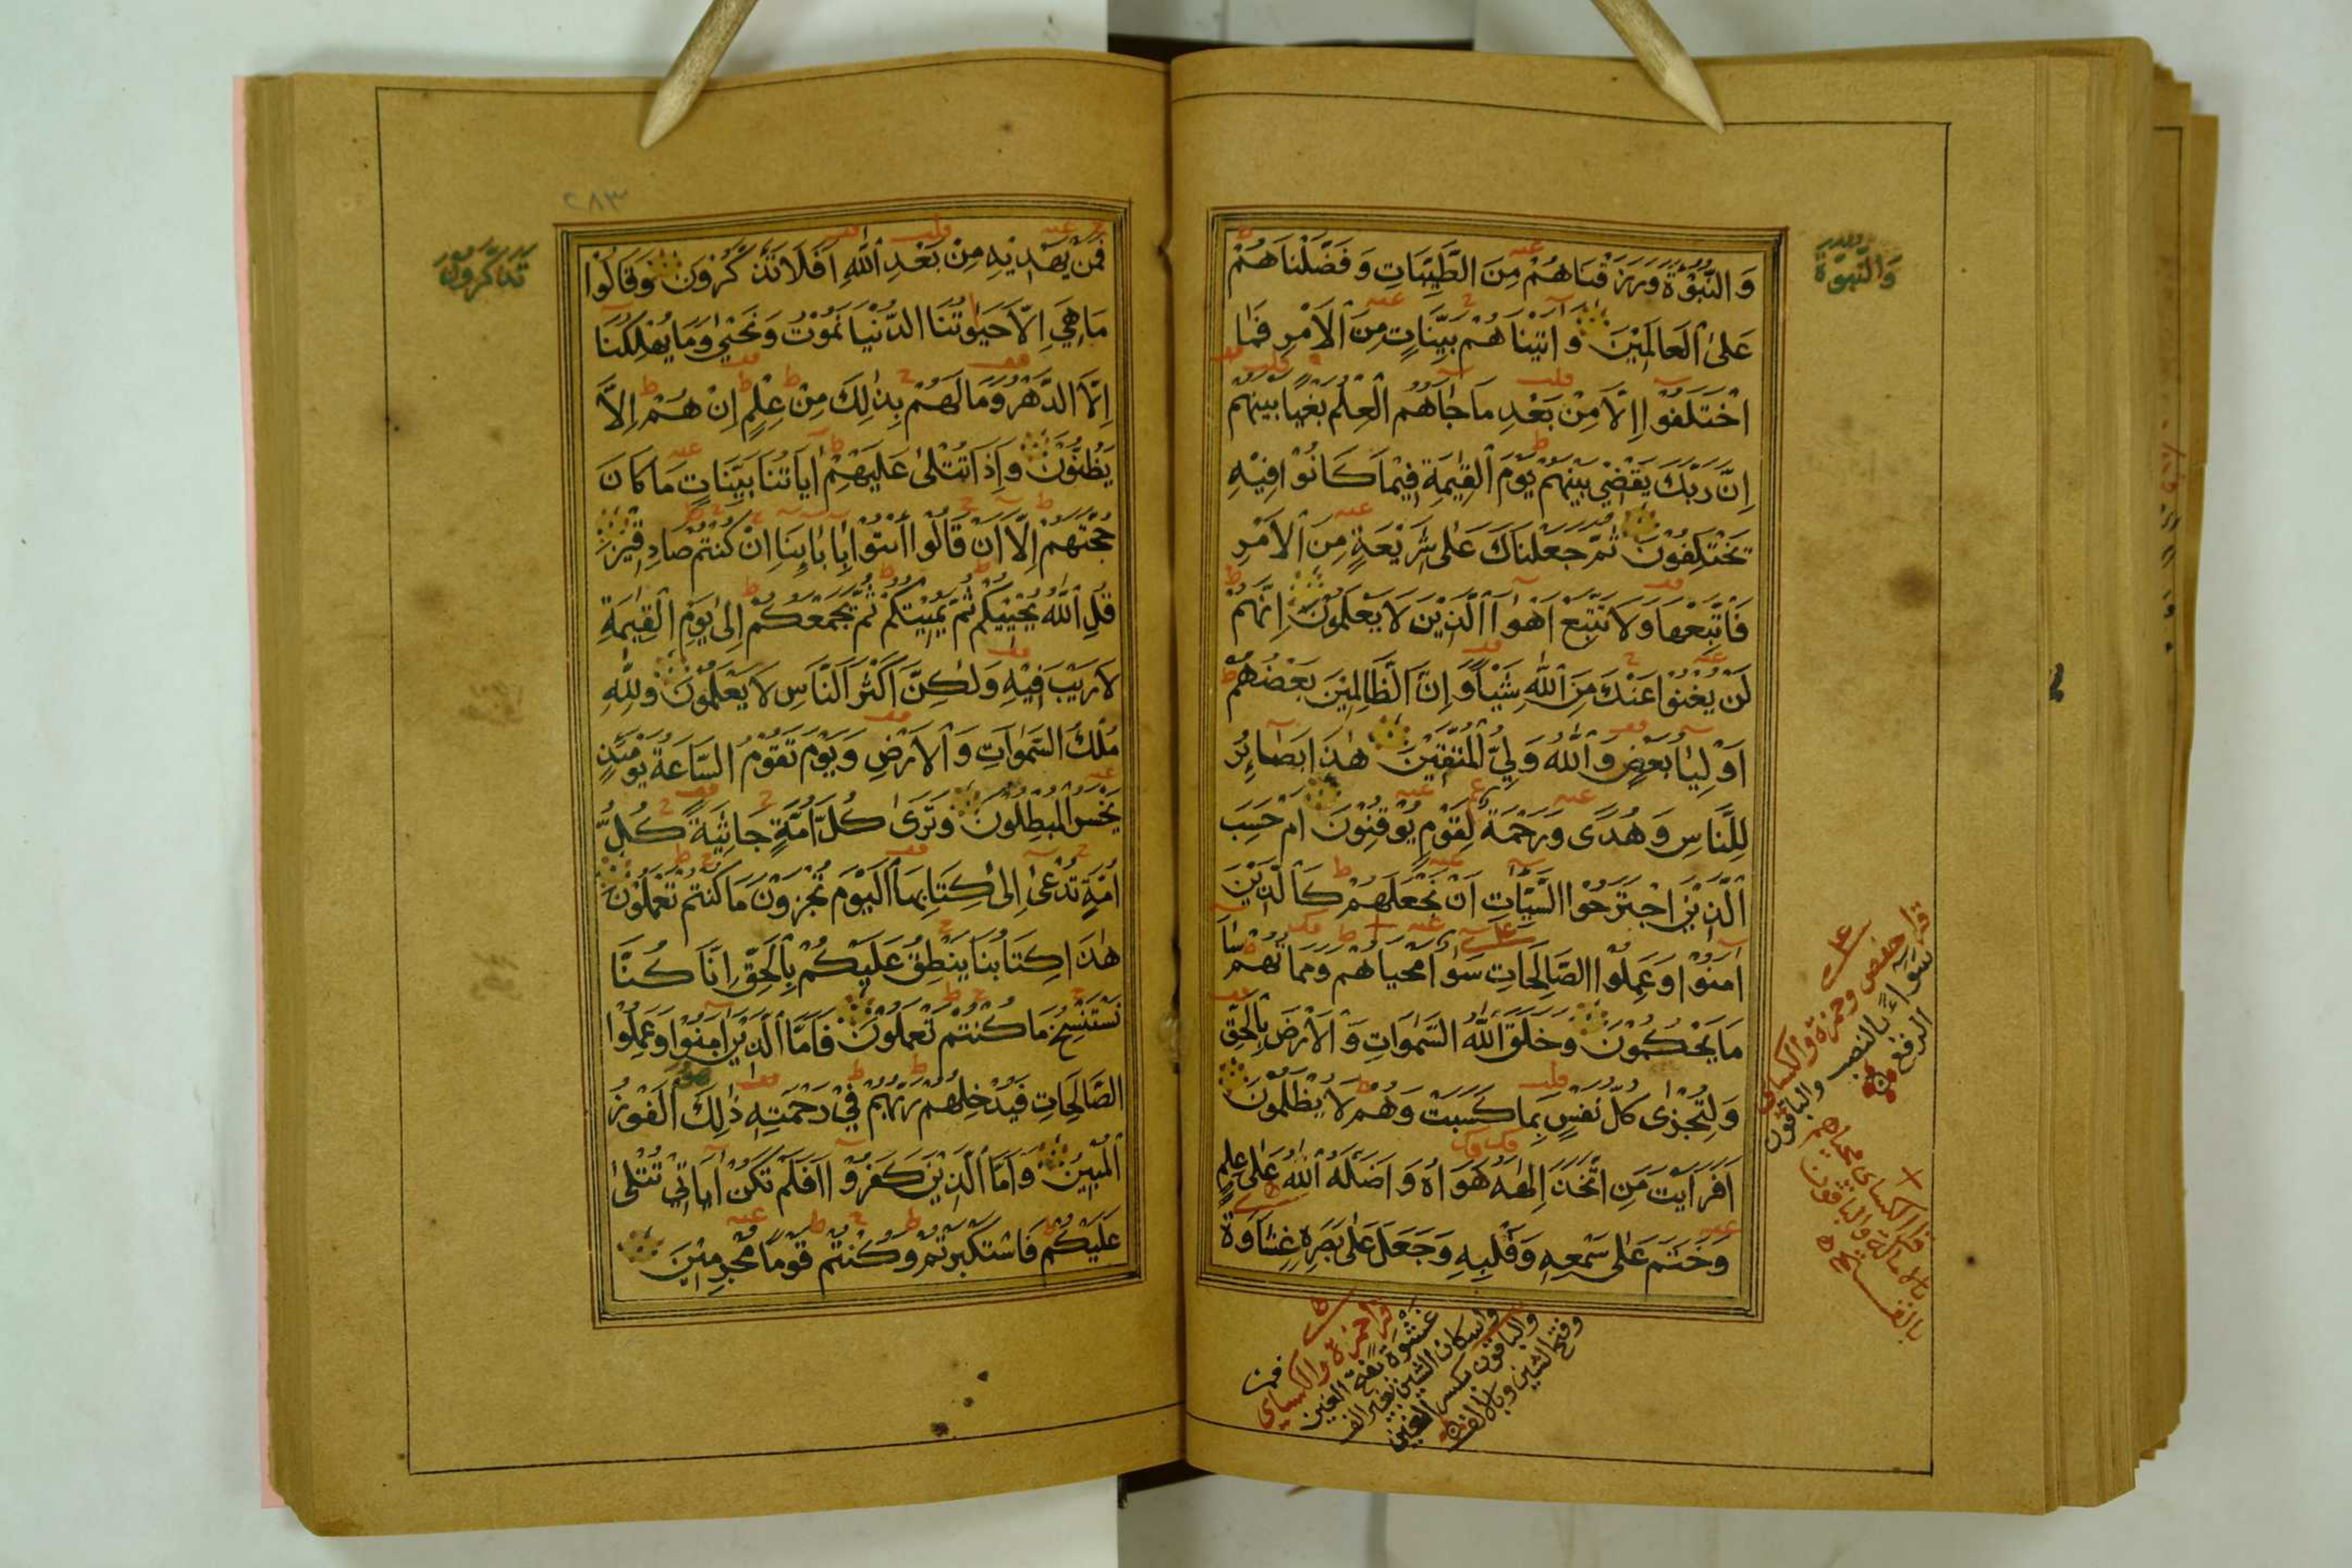 وَالنُّبُوَّةَ وَرَزَقْنَاهُمْ مِنَ الطَّيِّبَاتِ وَفَضَّلْنَاهُمْ
عَلَى الْعَالَمِيْنَ وَاٰتَيْنَاهُمْ بَيِّنَاتٍ مِنَ الْاَمْرِ فَمَا
اخْتَلَفُوْا اِلَّا مِنْ بَعْدِ مَا جَاۤاَهُمُ الْعِلْمُ بَغْيًا بَيْنَهُمْ
اِنَّ رَبَّكَ يَقْضِيْ بَيْنَهُمْ يَوْمَ الْقِيٰمَةِ فِيْمَا كَانُوْا فِيْهِ
يَخْتَلِفُوْنَ ثُمَّ جَعَلْنَاكَ عَلٰى شَرِيْعَةٍ مِنَ الْاَمْرِ
فَاتَّبِعْهَا وَلَا تَتَّبِعْ اَهْوَاۤا الَّذِيْنَ لَا يَعْلَمُوْنَ اِنَّهُمْ
لَنْ يُغْنُوْا عَنْكَ مِنَ اللّٰهِ شَيْاً وَ اِنَّ الظَّالِمِيْنَ بَعْضُهُمْ
اَوْلِيَاۤا بَعْضٍ وَاللّٰهُ وَلِيُّ الْمُتَّقِيْنَ هٰذَا بَصَاۤئِرُ
لِلنَّاسِ وَهُدًى وَرَحْمَةٌ لِقَوْمٍ يُوْقِنُوْنَ اَمْ حَسِبَ
الَّذِيْنَ اجْتَرَحُوا السَّيِّاٰتِ اَنْ نَجْعَلَهُمْ كَالَّذِيْنَ
اٰمَنُوْا وَعَمِلُوا الصَّالِحَاتِ سَوَاۤاً مَحْيَاهُمْ وَمَمَاتُهُمْ سَاۤاَ
مَا يَحْكُمُوْنَ وَخَلَقَ اللّٰهُ السَّمٰوَاتِ وَالْاَرْضَ بِالْحَقِّ
وَلِتُجْزٰى كُلُّ نَفْسٍ بِمَا كَسَبَتْ وَهُمْ لَا يُظْلَمُوْنَ
اَفَرَاَيْتَ مَنِ اتَّخَذَ اِلٰهَهُ هَوَاهُ وَاَضَلَّهُ اللّٰهُ عَلٰى عِلْمٍ
وَخَتَمَ عَلٰى سَمْعِهِ وَقَلْبِهِ وَجَعَلَ عَلٰى بَصَرِهِ غِشَاوَةً
وَالنُّبُوَّةَ
قرا حفص وحمزة والكسائى
سَوَاۤءً بالنصب والباقون
الرفع
قرا الكساى محياهم
بالامالة والباقون
بالفتح
قرا حمزة والكساى
غَشْوَةً بفتح الغين
واسكان الشين بغير الف
والباقون بكسر الغين
وفتح الشين وبالالف
فمن
٢٨٣
فَمَنْ يَهْدِيْهِ مِنْ بَعْدِ اللّٰهِ اَفَلَا تَذَكَّرُوْنَ وَقَالُوْا
مَا هِيَ اِلَّا حَيٰوتُنَا الدُّنْيَا نَمُوْتُ وَنَحْيٰى وَمَا يُهْلِكُنَا
اِلَّا الدَّهْرُ وَمَا لَهُمْ بِذٰلِكَ مِنْ عِلْمٍ اِنْ هُمْ اِلَّا
يَظُنُّوْنَ وَاِذَا تُتْلٰى عَلَيْهِمْ اٰيَاتُنَا بَيِّنَاتٍ مَا كَانَ
حُجَّتَهُمْ اِلَّا اَنْ قَالُوا ائْتُوْا بِاٰبَاۤئِنَا اِنْ كُنْتُمْ صَادِقِيْنَ
قُلِ اللّٰهُ يُحْيِيْكُمْ ثُمَّ يُمِيْتُكُمْ ثُمَّ يَجْمَعُكُمْ اِلٰى يَوْمِ الْقِيٰمَةِ
لَا رَيْبَ فِيْهِ وَلٰكِنَّ اَكْثَرَ النَّاسِ لَا يَعْلَمُوْنَ وَلِلّٰهِ
مُلْكُ السَّمٰوَاتِ وَالْاَرْضِ وَيَوْمَ تَقُوْمُ السَّاعَةُ يَوْمَئِذٍ
يَخْسَرُ الْمُبْطِلُوْنَ وَتَرٰى كُلَّ اُمَّةٍ جَاثِيَةً كُلُّ
اُمَّةٍ تُدْعٰى اِلٰى كِتَابِهَا الْيَوْمَ تُجْزَوْنَ مَا كُنْتُمْ تَعْمَلُوْنَ
هٰذَا كِتَابُنَا يَنْطِقُ عَلَيْكُمْ بِالْحَقِّ اِنَّا كُنَّا
نَسْتَنْسِخُ مَا كُنْتُمْ تَعْمَلُوْنَ فَاَمَّا الَّذِيْنَ اٰمَنُوْا وَعَمِلُوا
الصَّالِحَاتِ فَيُدْخِلُهُمْ رَبُّهُمْ فِيْ رَحْمَتِهِ ذٰلِكَ الْفَوْزُ
الْمُبِيْنُ وَاَمَّا الَّذِيْنَ كَفَرُوْا اَفَلَمْ تَكُنْ اٰيَاتِيْ تُتْلٰى
عَلَيْكُمْ فَاسْتَكْبَرْتُمْ وَكُنْتُمْ قَوْمًا مُجْرِمِيْنَ
تَذَكَّرُوْنَ